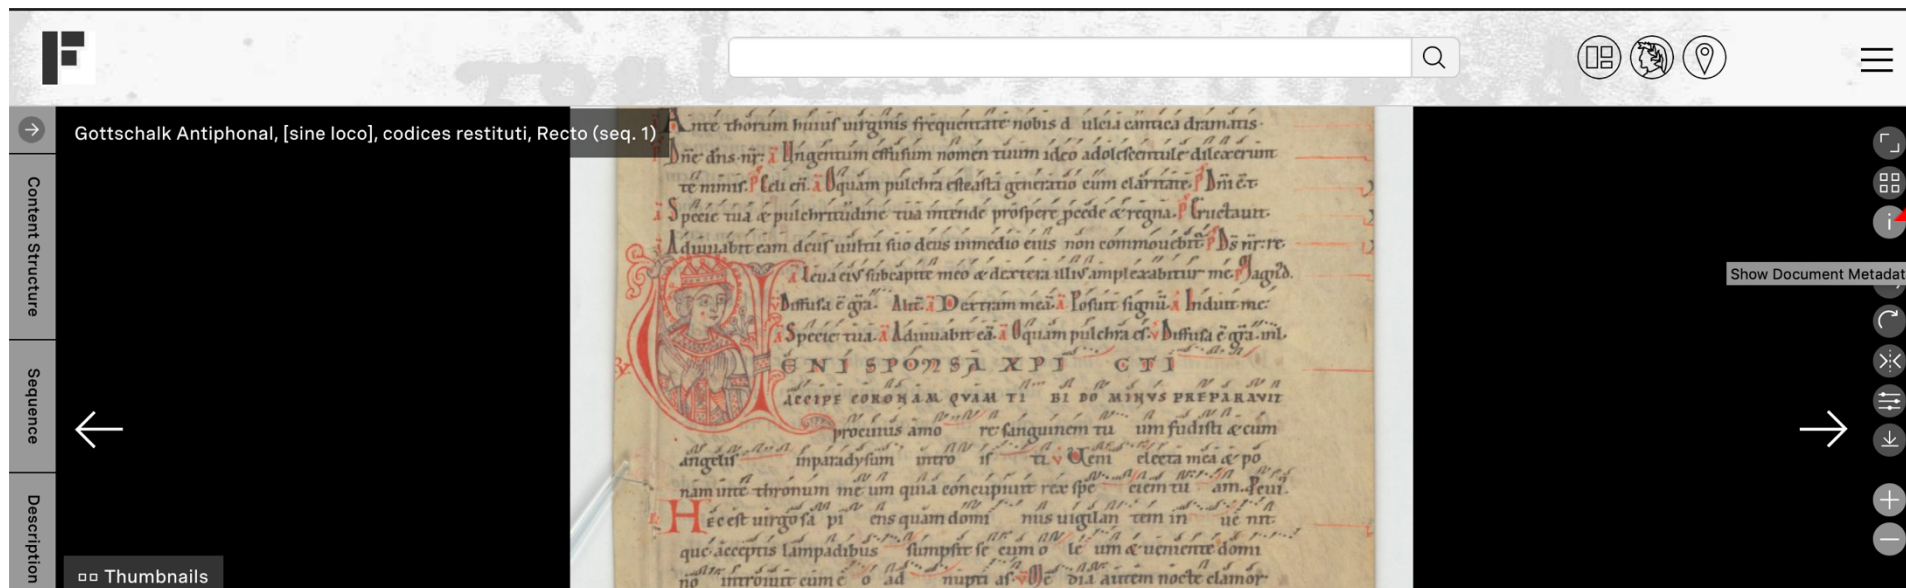 Gottschalk Antiphonal, [sine loco], codices restituti, Recto (seq. 1)
Content Structure
Sequence
Description
Thumbnails
Show Document Metadat
Ante thorum huius uirginis frequentate nobis d ulcia cantica dramatis.
Dne dns nr: a Ungentum effusum nomen tuum ideo adolescentule dilexerunt
te nimis. p Celi en. a O quam pulchra est casta generatio cum claritate. p Dni e t
a Specie tua & pulchritudine tua intende prospere pcede & regna. p Eructauit.
Adiuuabit eam deus uultu suo deus inmedio eius non commouebit. p Ds nr: re
a Leua eius subcapite meo & dextera illius amplexabitur me.
Diffusa e gra. a Dextram mea. a Posuit signu. a Induit me:
a Specie tua. a Adiuuabit ea. a O quam pulchra es. v Diffusa e gra. inl.
ENI SPONSA XPI
ACCIPE CORONAM QVAM TI BI DO MINVS PREPARAVIT
procuius amo re sanguinem tu um fudisti & cum
angelis inparadysum intro is ti. v Ueni electa mea & po
nam inte thronum me um quia concupiuit rex spe ciem tu am.
Hec est uirgo sa pi ens quam domi nus uigilan tem in ue nit.
que acceptis lampadibus sumpsit se cum o le um & ueniente domi
no introiuit cum e o ad nupti as. v Me dia autem nocte clamor